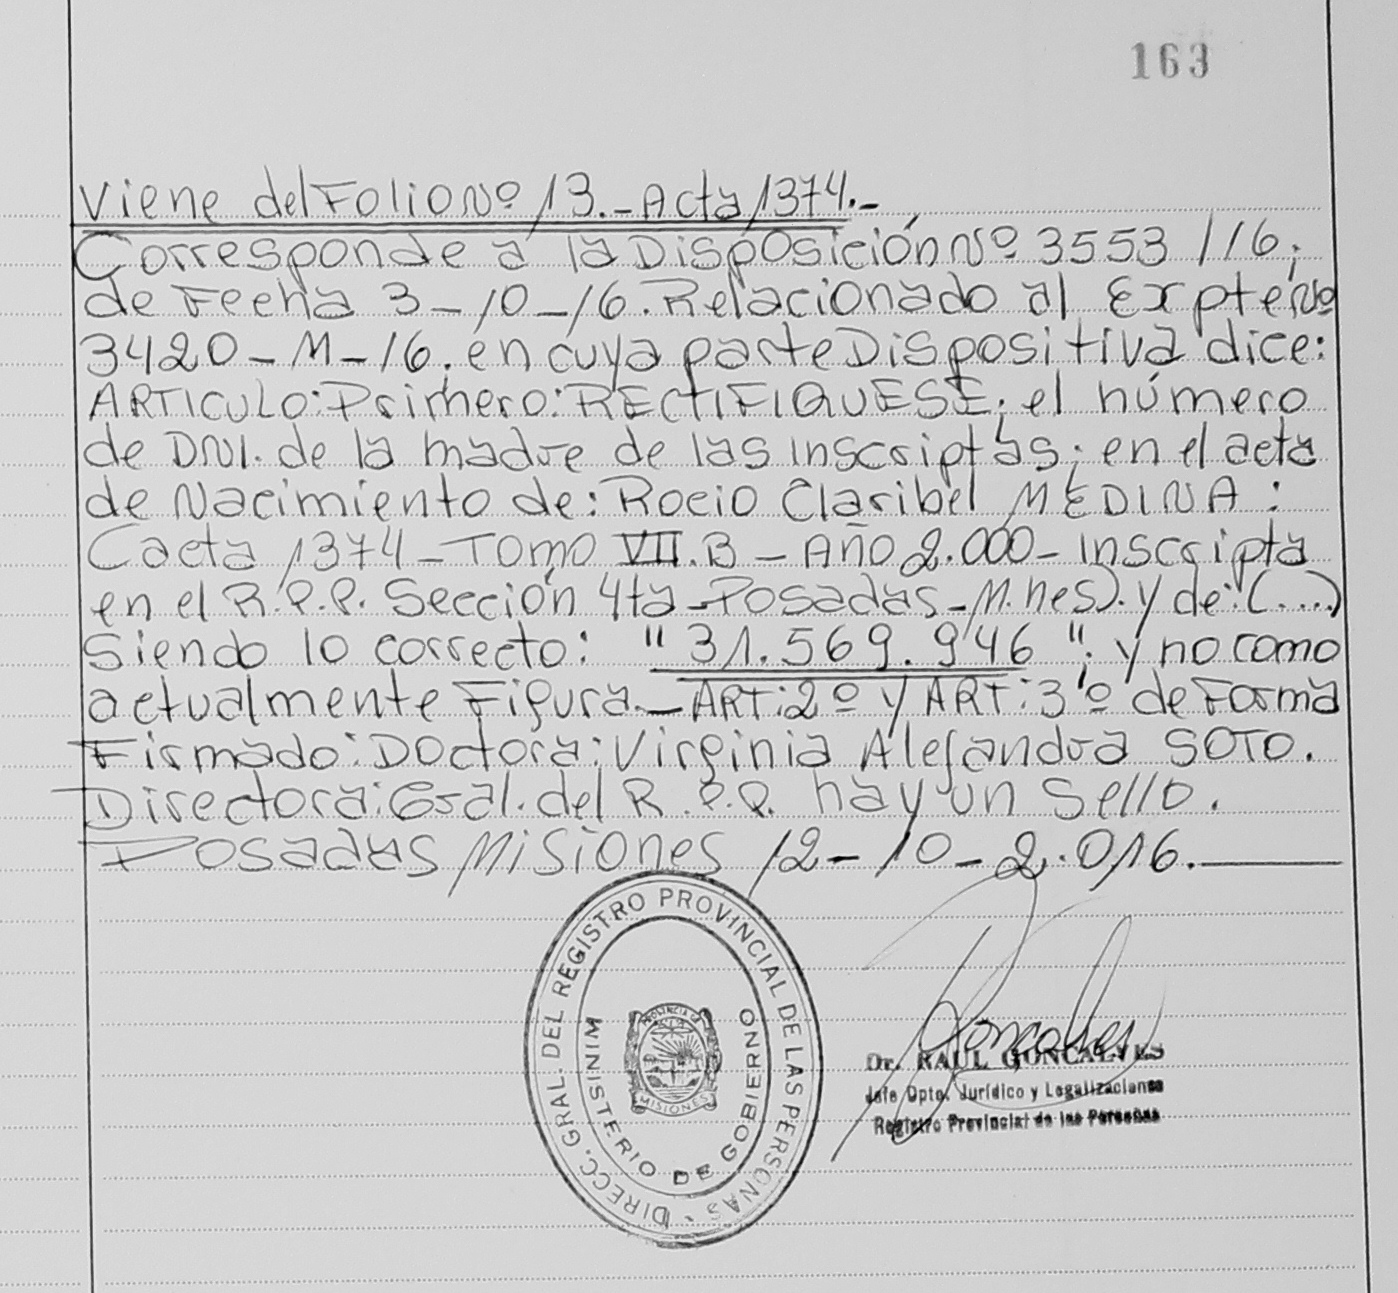 163
Viene del Folio Nº 13.- Acta 1374.-
Corresponde a la Disposición Nº 3553 / 16;
de Fecha 3-10-16. Relacionado al Expte Nº
3420-M-16. en cuya parte Dispositiva dice:
ARTICULO: Primero: RECTIFIQUESE; el número
de DNI. de la madre de las inscriptas; en el acta
de Nacimiento de: Rocio Claribel MEDINA:
(acta 1374 - TOMO VII.B - Año 2.000 - inscripta
en el R.P.P. Sección 4ta - Posadas - M.nes). y de: (....)
Siendo lo correcto: "31.569.946"; y no como
actualmente Figura.- ART: 2º y ART: 3º de Forma
Firmado: Doctora: Virginia Alejandra SOTO.
Directora: Gral. del R.P.P. hay un Sello.
Posadas Misiones 12-10-2.016.
DIRECC. GRAL. DEL REGISTRO PROVINCIAL DE LAS PERSONAS -
MINISTERIO DE GOBIERNO
PROVINCIA DE
MISIONES
Dr. RAUL GONCALVES
Jefe Dpto. Jurídico y Legalizaciones
Registro Provincial de las Personas